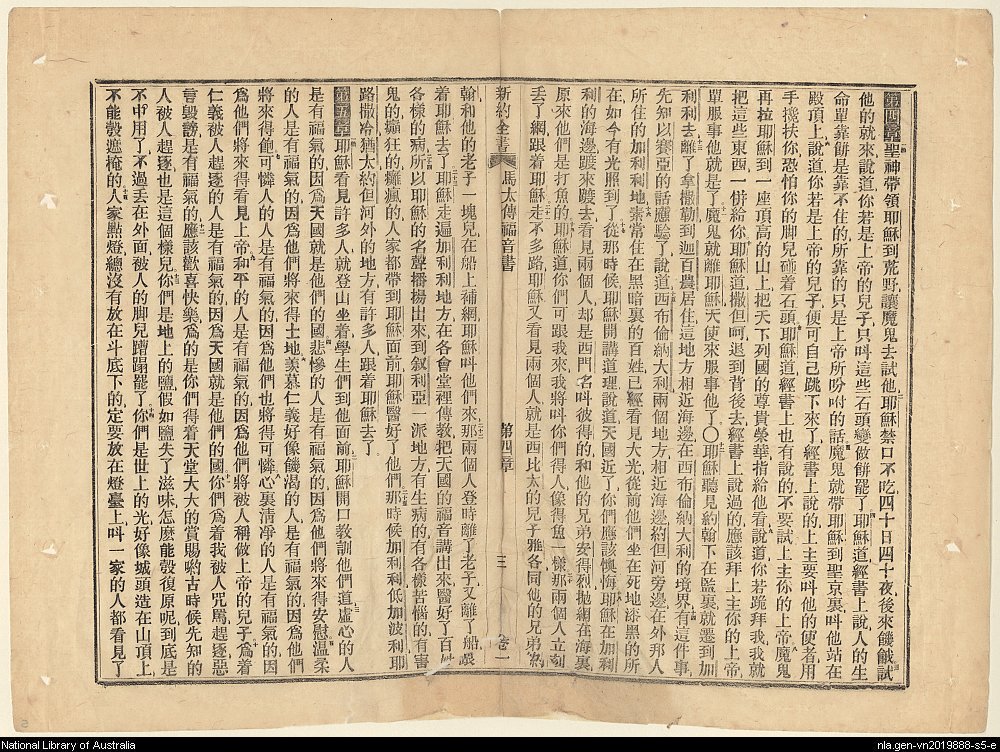 第四章聖神帶領耶穌到荒野讓魔鬼去試他耶穌禁口不吃四十日四十夜後來饑餓試
他的就來說道你若是上帝的兒子只呌這些石頭變做餅罷了耶穌道經書上說人的生
命單靠餅是靠不住的所靠的只是上帝所吩咐的話魔鬼就帶耶穌到聖京裏呌他站在
殿頂上說道你若是上帝的兒子便可自己跳下來了經書上說的上主要呌他的使者用
手攙扶你恐怕你的脚兒碰着石頭耶穌道經書上也有說的不要試上主你的上帝魔鬼
再拉耶穌到一座頂高的山上把天下列國的尊貴榮華指給他看說道你若跪拜我我就
把這些東西一併給你耶穌道撒但呵退到背後去經書上說過的應該拜上主你的上帝
單服事他就是了魔鬼就離耶穌天使來服事他了〇耶穌聽見約翰下在監裏就䙴到加
利利去離了拿撒勒到迦百農居住這地方相近海邊在西布倫納大利的境界有這件事
先知以賽亞的話應驗了說道西布倫納大利兩個地方相近海邊約但河旁邊在外邦人
所住的加利利地素常住在黑暗裏的百姓已經看見大光從前他們坐在死地漆黑的所
在如今有光照到了從那時候耶穌開講道理說道天國近了你們應該懊悔耶穌在加利
利的海邊踱來踱去看見兩個人却是西門名呌彼得的和他的兄弟安得烈拋網在海裏
原來他們是打魚的耶穌道你們可跟我來我將呌你們得人像得魚一樣那兩個人立刻
丟了網跟着耶穌走不多路耶穌又看見兩個人就是西比太的兒子雅各同他的兄弟約
新約全書 馬太傳福音書 第四章 三 卷一
翰和他的老子一塊兒在船上補網耶穌呌他們來那兩個人登時離了老子又離了船跟
着耶穌去了耶穌走遍加利利地方在各會堂裡傳教把天國的福音講出來醫好了百
各樣的病所以耶穌的名聲播揚出來到叙利亞一派地方有生病的有各樣苦惱的有害
鬼的癲狂的癱瘋的人家都帶到耶穌面前耶穌醫好了他們那時候加利利低加波利耶
路撒冷猶太約但河外的地方有許多人跟着耶穌去了
第五章耶穌看見許多人就登山坐着學生們到他面前耶穌開口教訓他們道虛心的人
是有福氣的因爲天國就是他們的國悲慘的人是有福氣的因爲他們將來得安慰温柔
的人是有福氣的因爲他們將來得土地羡慕仁義好像饑渴的人是有福氣的因爲他們
將來得飽可憐人的人是有福氣的因爲他們也將得可憐心裏清凈的人是有福氣的因
爲他們將來得看見上帝和平的人是有福氣的因爲他們將被人稱做上帝的兒子爲着
仁義被人趕逐的人是有福氣的因爲天國就是他們的國你們爲着我被人咒罵趕逐惡
言毀謗是有福氣的應該歡喜快樂爲的是你們得着天堂大大的賞賜喲古時候先知的
人被人趕逐也是這個樣兒你們是地上的鹽假如鹽失了滋味怎麽能彀復原呢到底是
不中用了不過丟在外面被人的脚兒蹧蹋罷了你們是世上的光好像城頭造在山頂上
不能彀遮掩的人家點燈總沒有放在斗底下的定要放在燈臺上呌一家的人都看見了
National Library of Australia
nla.gen-vn2019888-s5-e